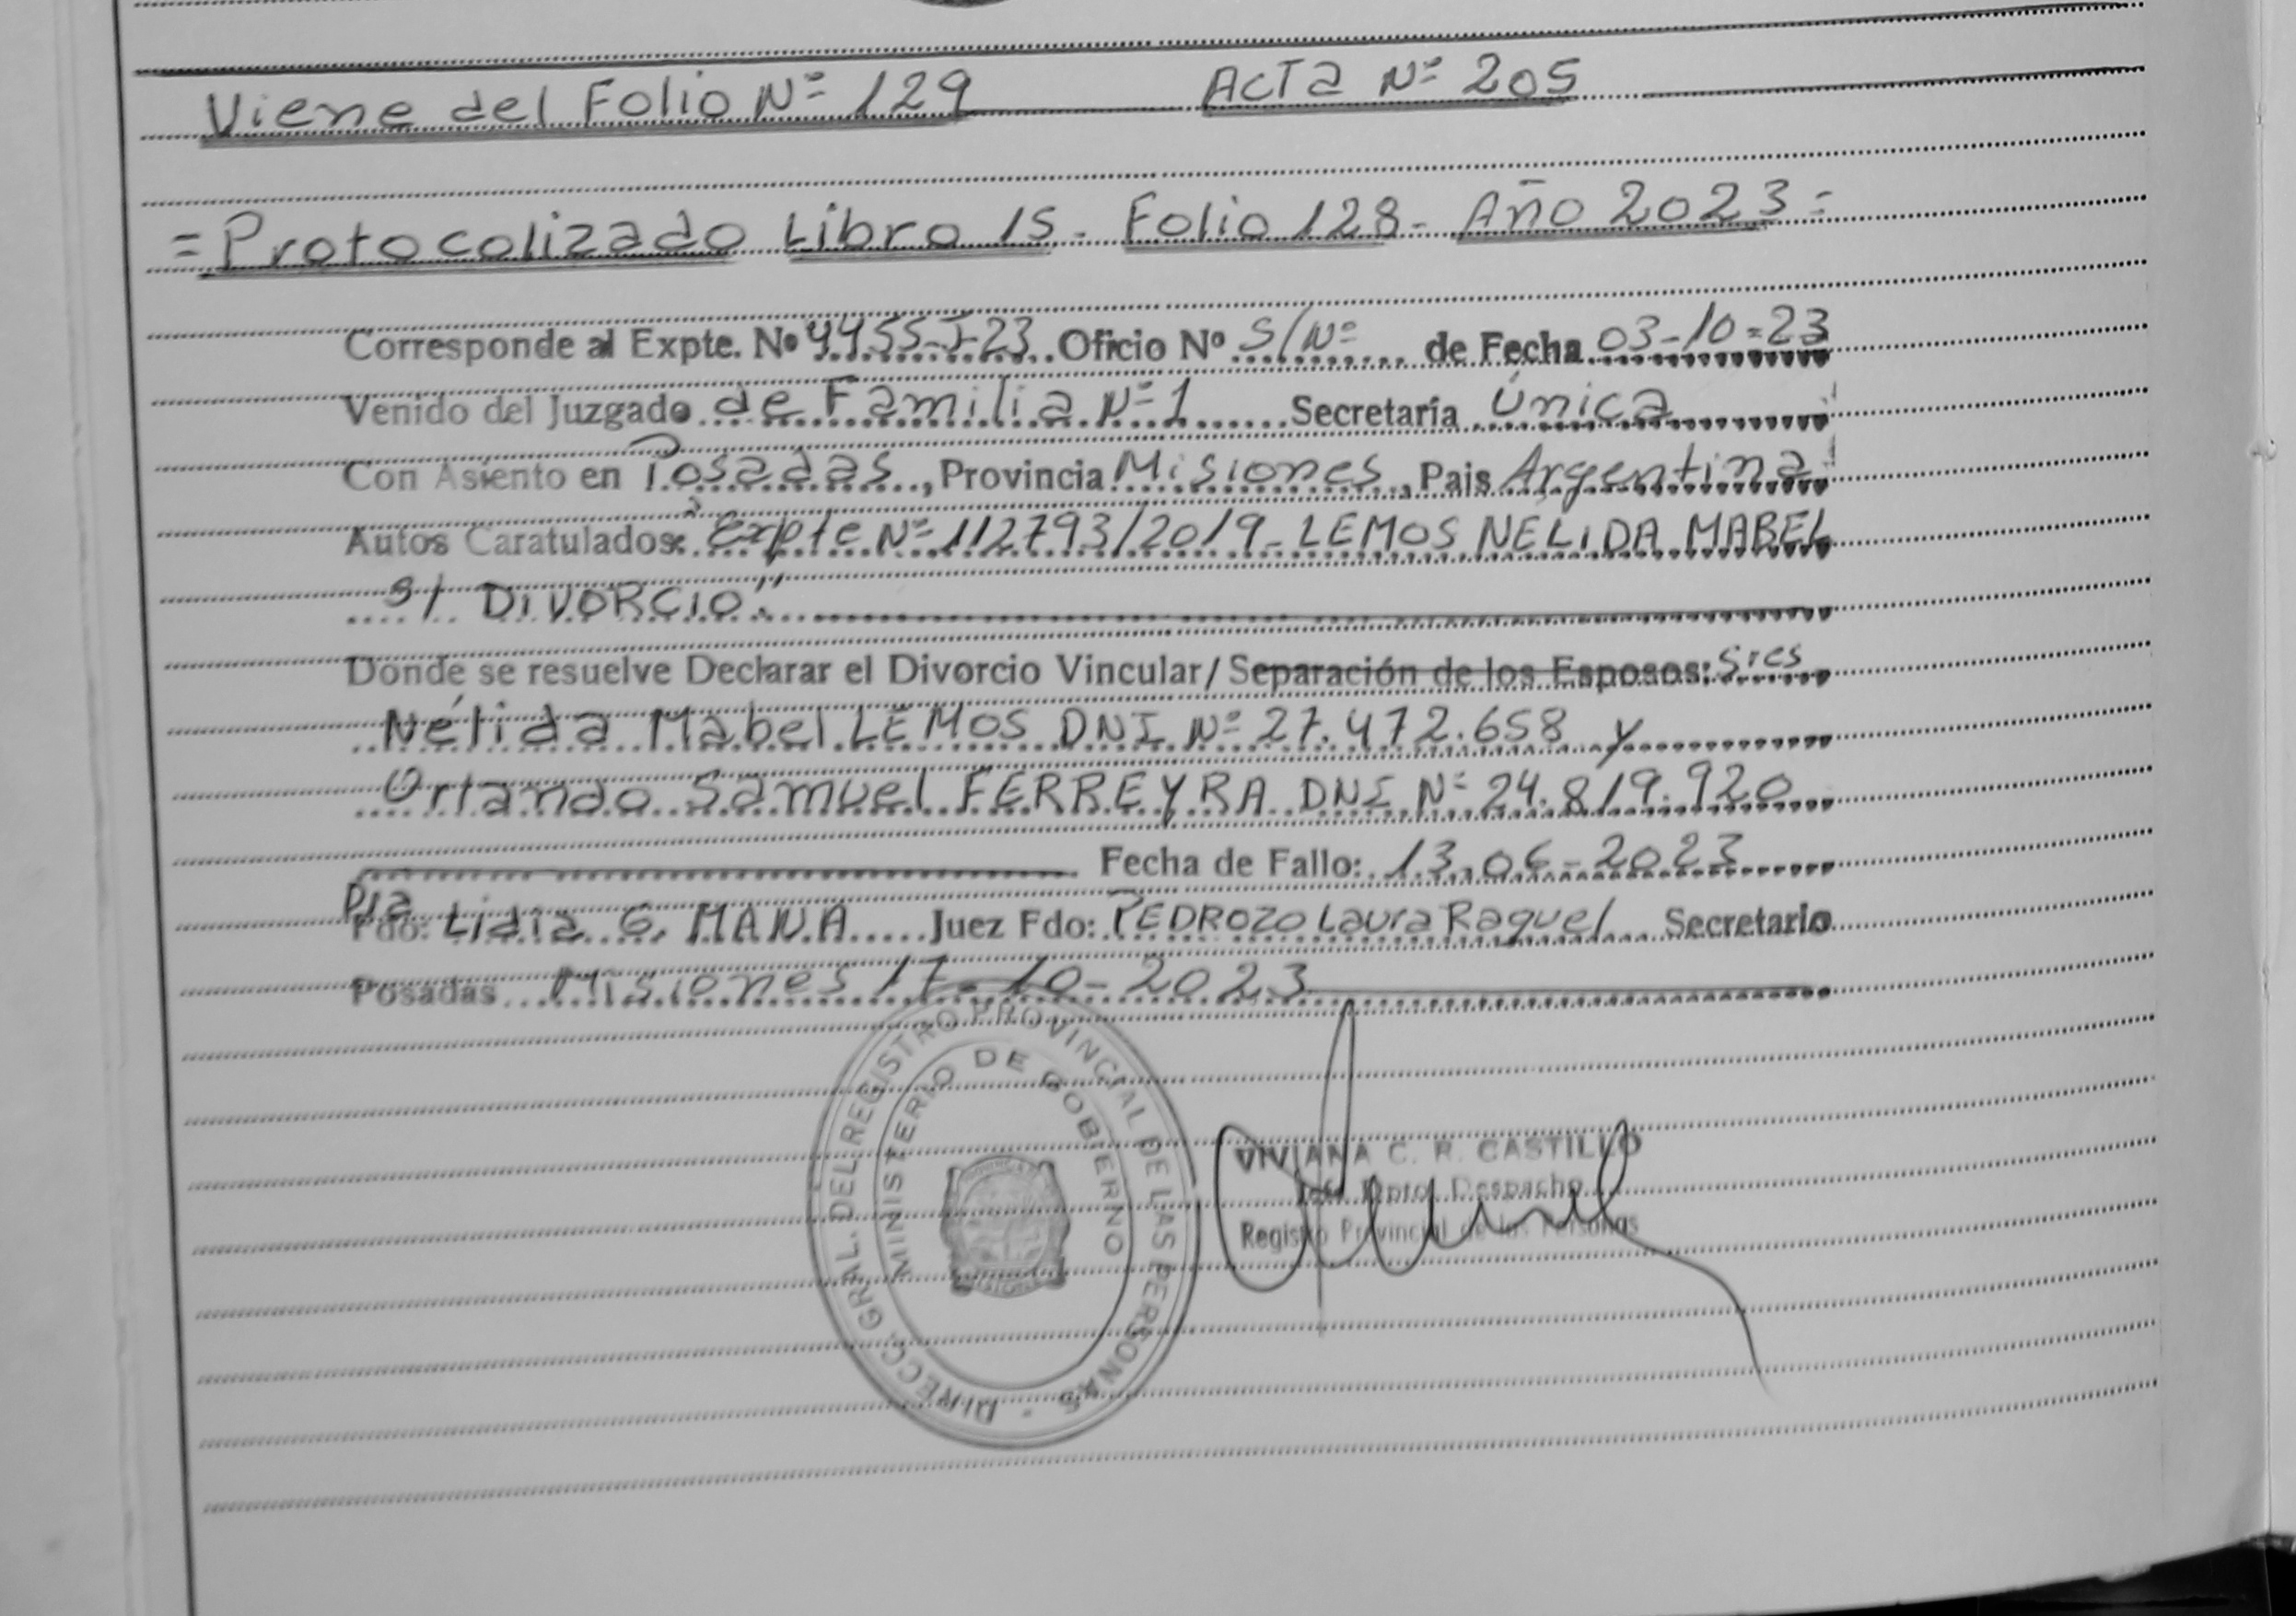 Viene del Folio Nº 129 Acta Nº 205
= Protocolizado Libro 15 - Folio 128 - Año 2023 =
Corresponde al Expte. Nº 4455-J-23 Oficio Nº S/Nº de Fecha 03-10-23
Venido del Juzgado de Familia Nº 1 Secretaría Única
Con Asiento en Posadas, Provincia Misiones, Pais Argentina
Autos Caratulados: "Expte Nº 112793/2019 - LEMOS NELIDA MABEL
S/ DIVORCIO"
Donde se resuelve Declarar el Divorcio Vincular/Separación de los Esposos: Sres
Nélida Mabel LEMOS DNI Nº 27.472.658 y
Orlando Samuel FERREYRA DNI Nº 24.819.920
Fecha de Fallo: 13.06-2023
Dra
Fdo: Lidia G. MANA Juez Fdo: PEDROZO Laura Raquel Secretario
Posadas Misiones 17-10-2023
DIRECC. GRAL. DEL REGISTRO PROVINCIAL DE LAS PERSONAS
MINISTERIO DE GOBIERNO
VIVIANA C. R. CASTILLO
Jefa Dpto. Despacho
Registro Provincial de las Personas